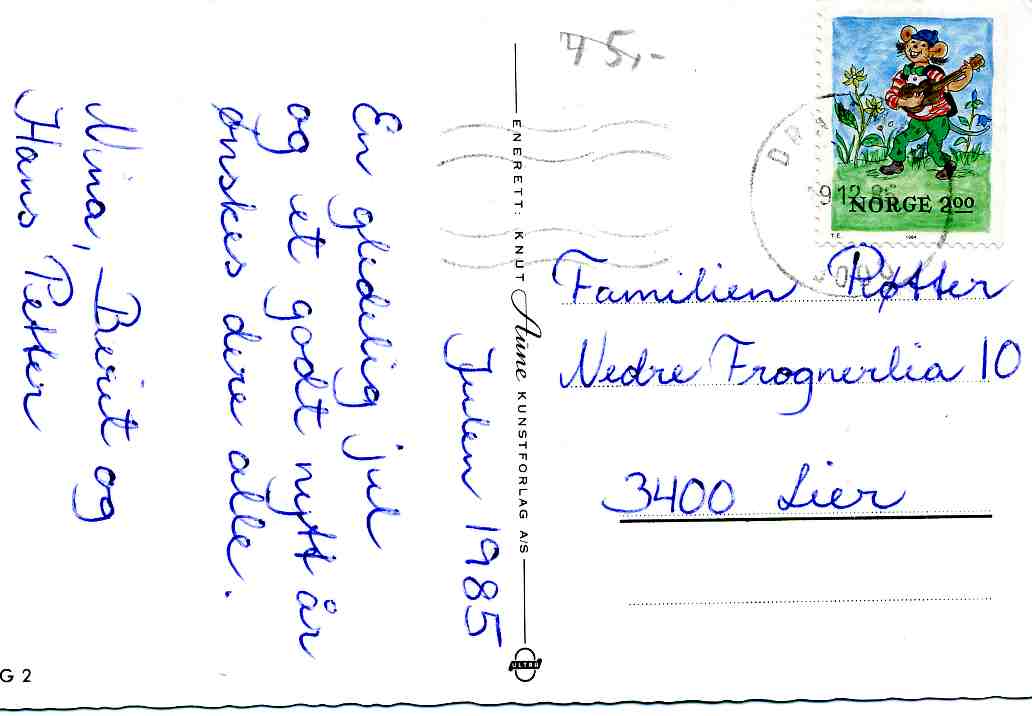 Julen 1985
En gledelig jul
og et godt nytt år
ønskes dere alle.
Nina, Berit og
Hans Petter
G 2
ENERETT: KNUT Aune KUNSTFORLAG A/S
ULTRA
45,-
NORGE 200
T.E. 1984
19.12.85
Familien Røtter
Nedre Frognerlia 10
3400 Lier